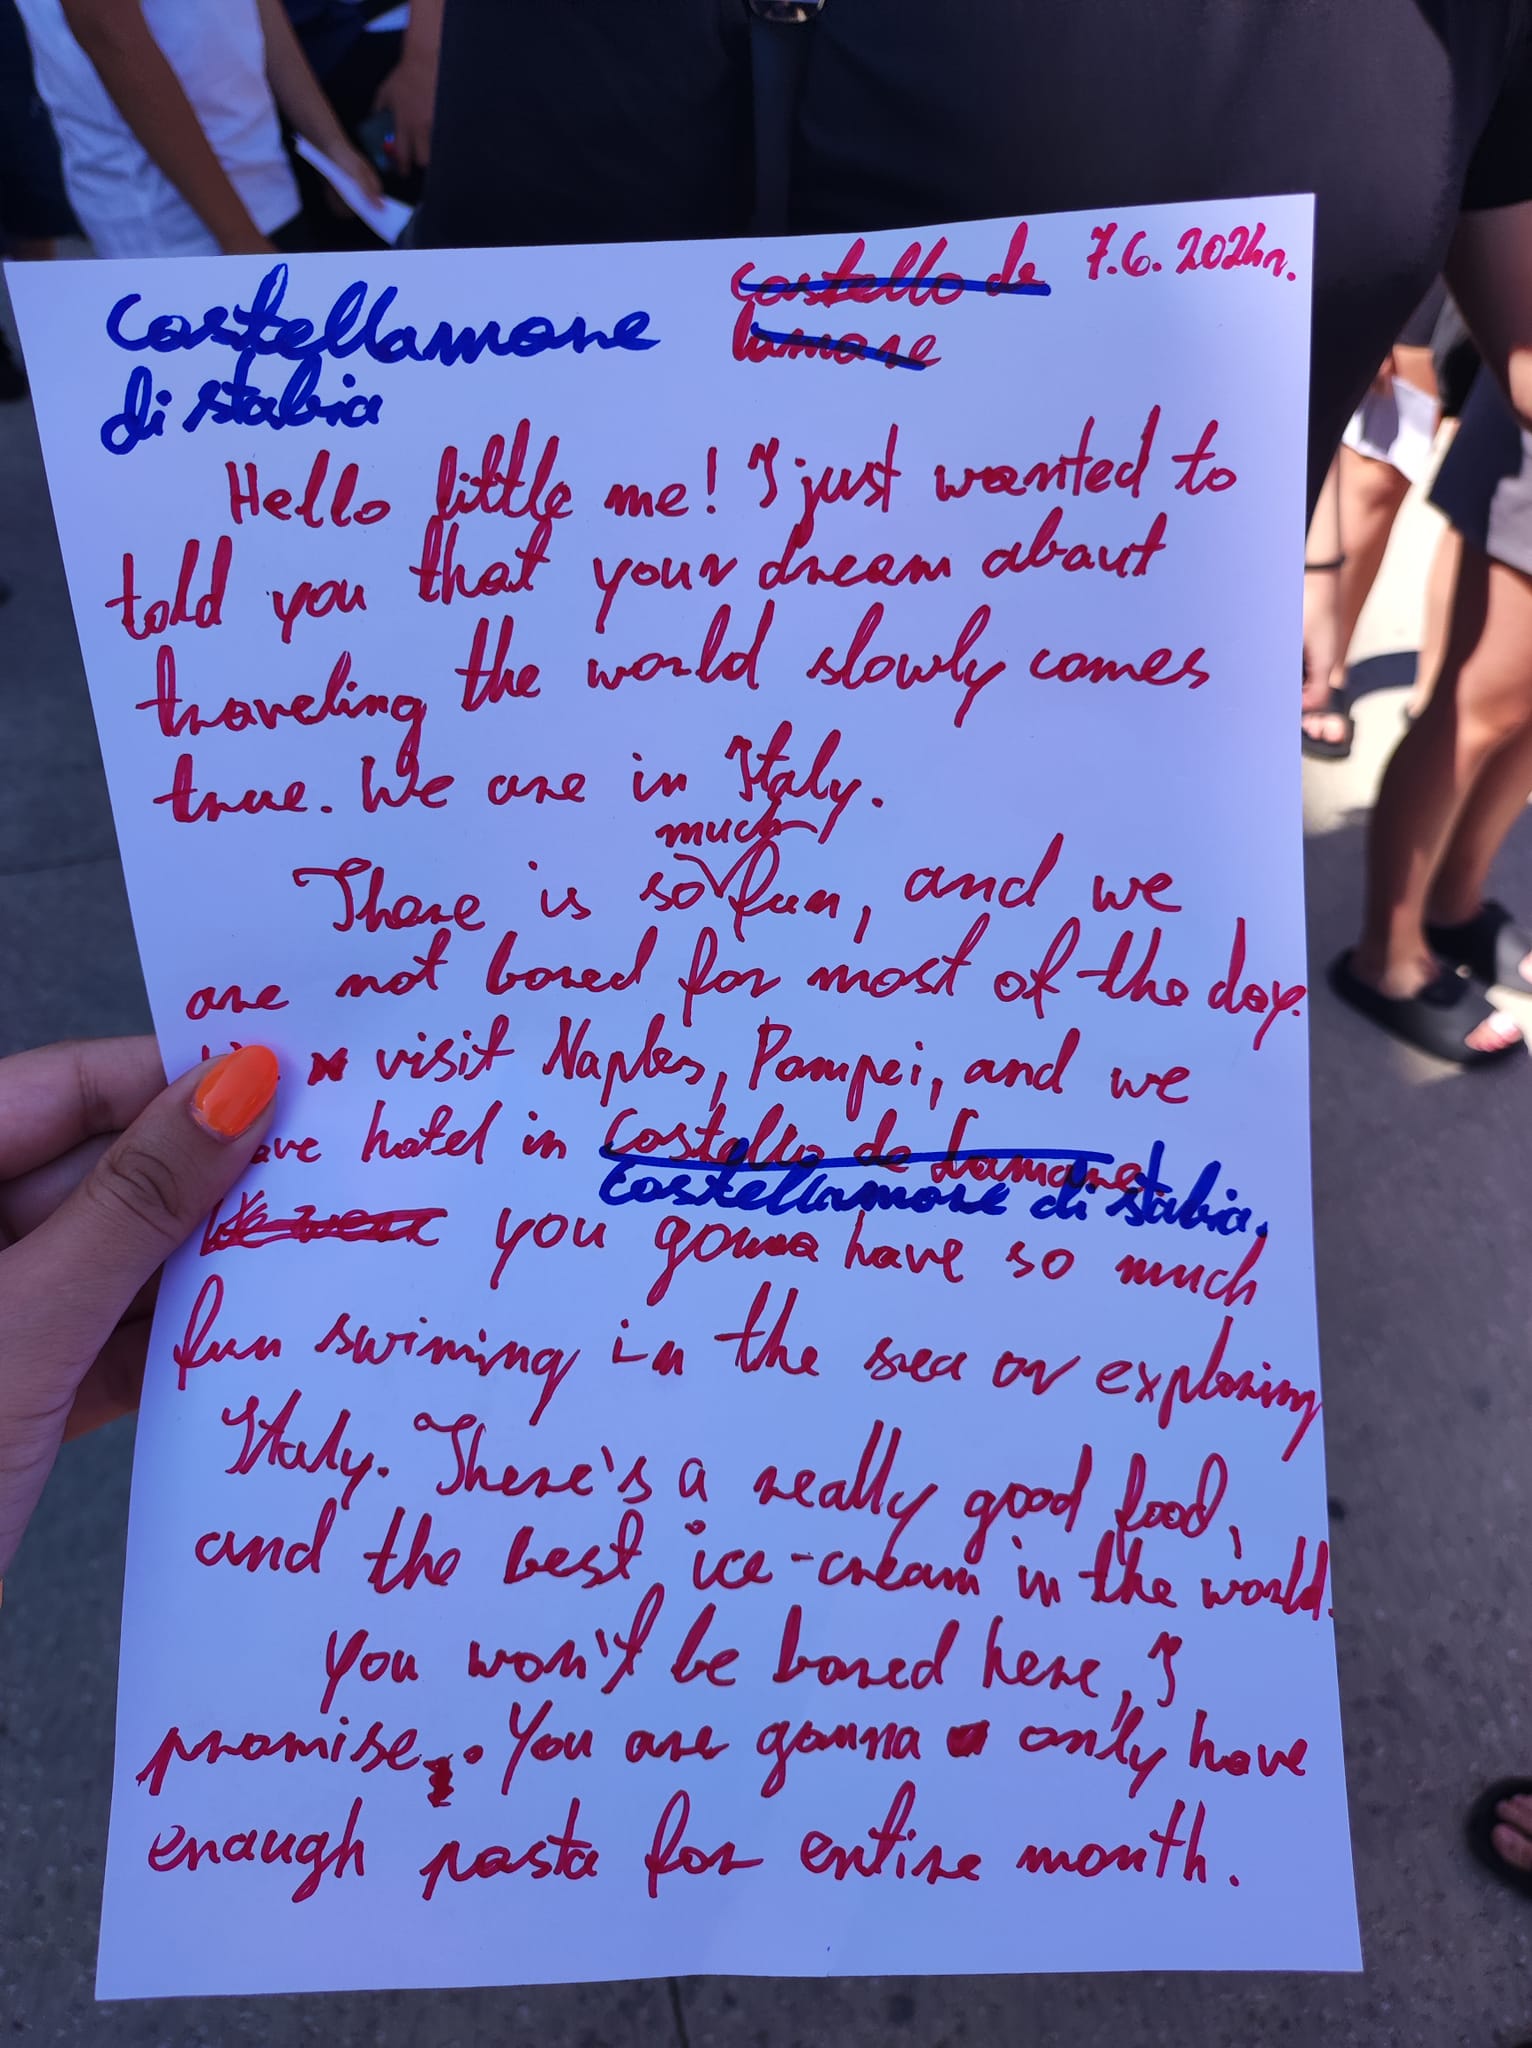 Castellamare
di stabia
Castello de
lamare
7.6.2024r.
Hello little me! I just wanted to
told you that your dream about
traveling the world slowly comes
true. We are in Italy.
much
There is so fun, and we
are not bored for most of the day.
visit Naples, Pompei, and we
ave hotel in Costello de Lamare
Castellamare di stabia.
We were you gonna have so much
fun swiming in the sea or exploring
Italy. There's a really good food,
and the best ice-cream in the world.
You won't be bored here, I
promise. You are gonna only have
enaugh pasta for entire month.